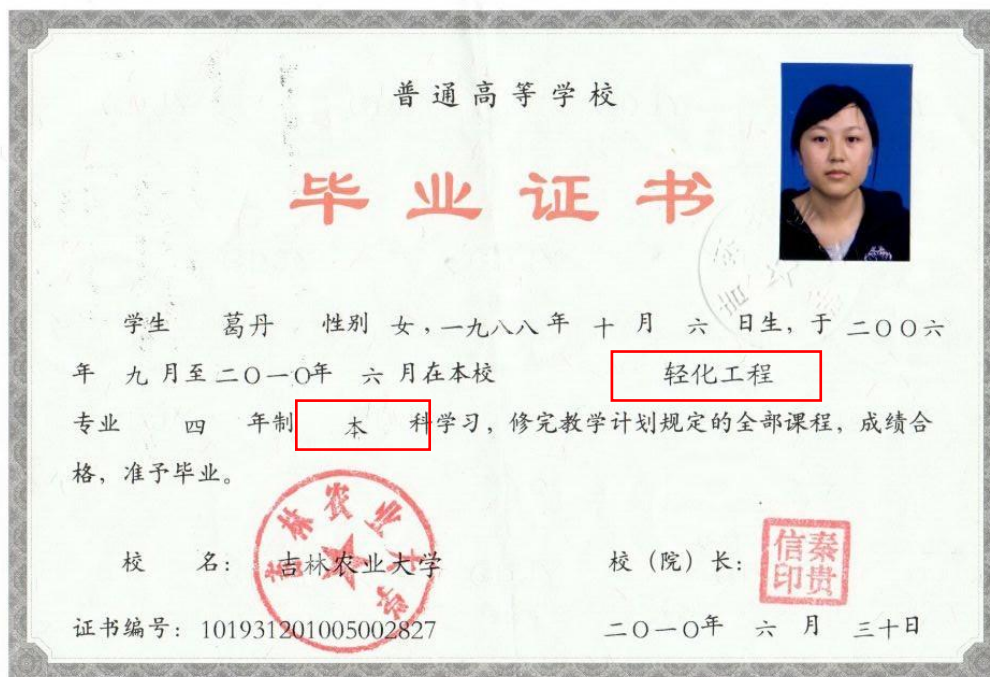 普通高等学校
毕业证书
学生 葛丹 性别 女，一九八八年 十 月 六 日生，于 二〇〇六
年 九 月至二〇一〇年 六 月在本校 轻化工程
专业 四 年制 本 科学习，修完教学计划规定的全部课程，成绩合
格，准予毕业。
吉林农业大学
校 名：吉林农业大学 校（院）长：
秦贵信印
证书编号：101931201005002827 二〇一〇年 六 月 三十日